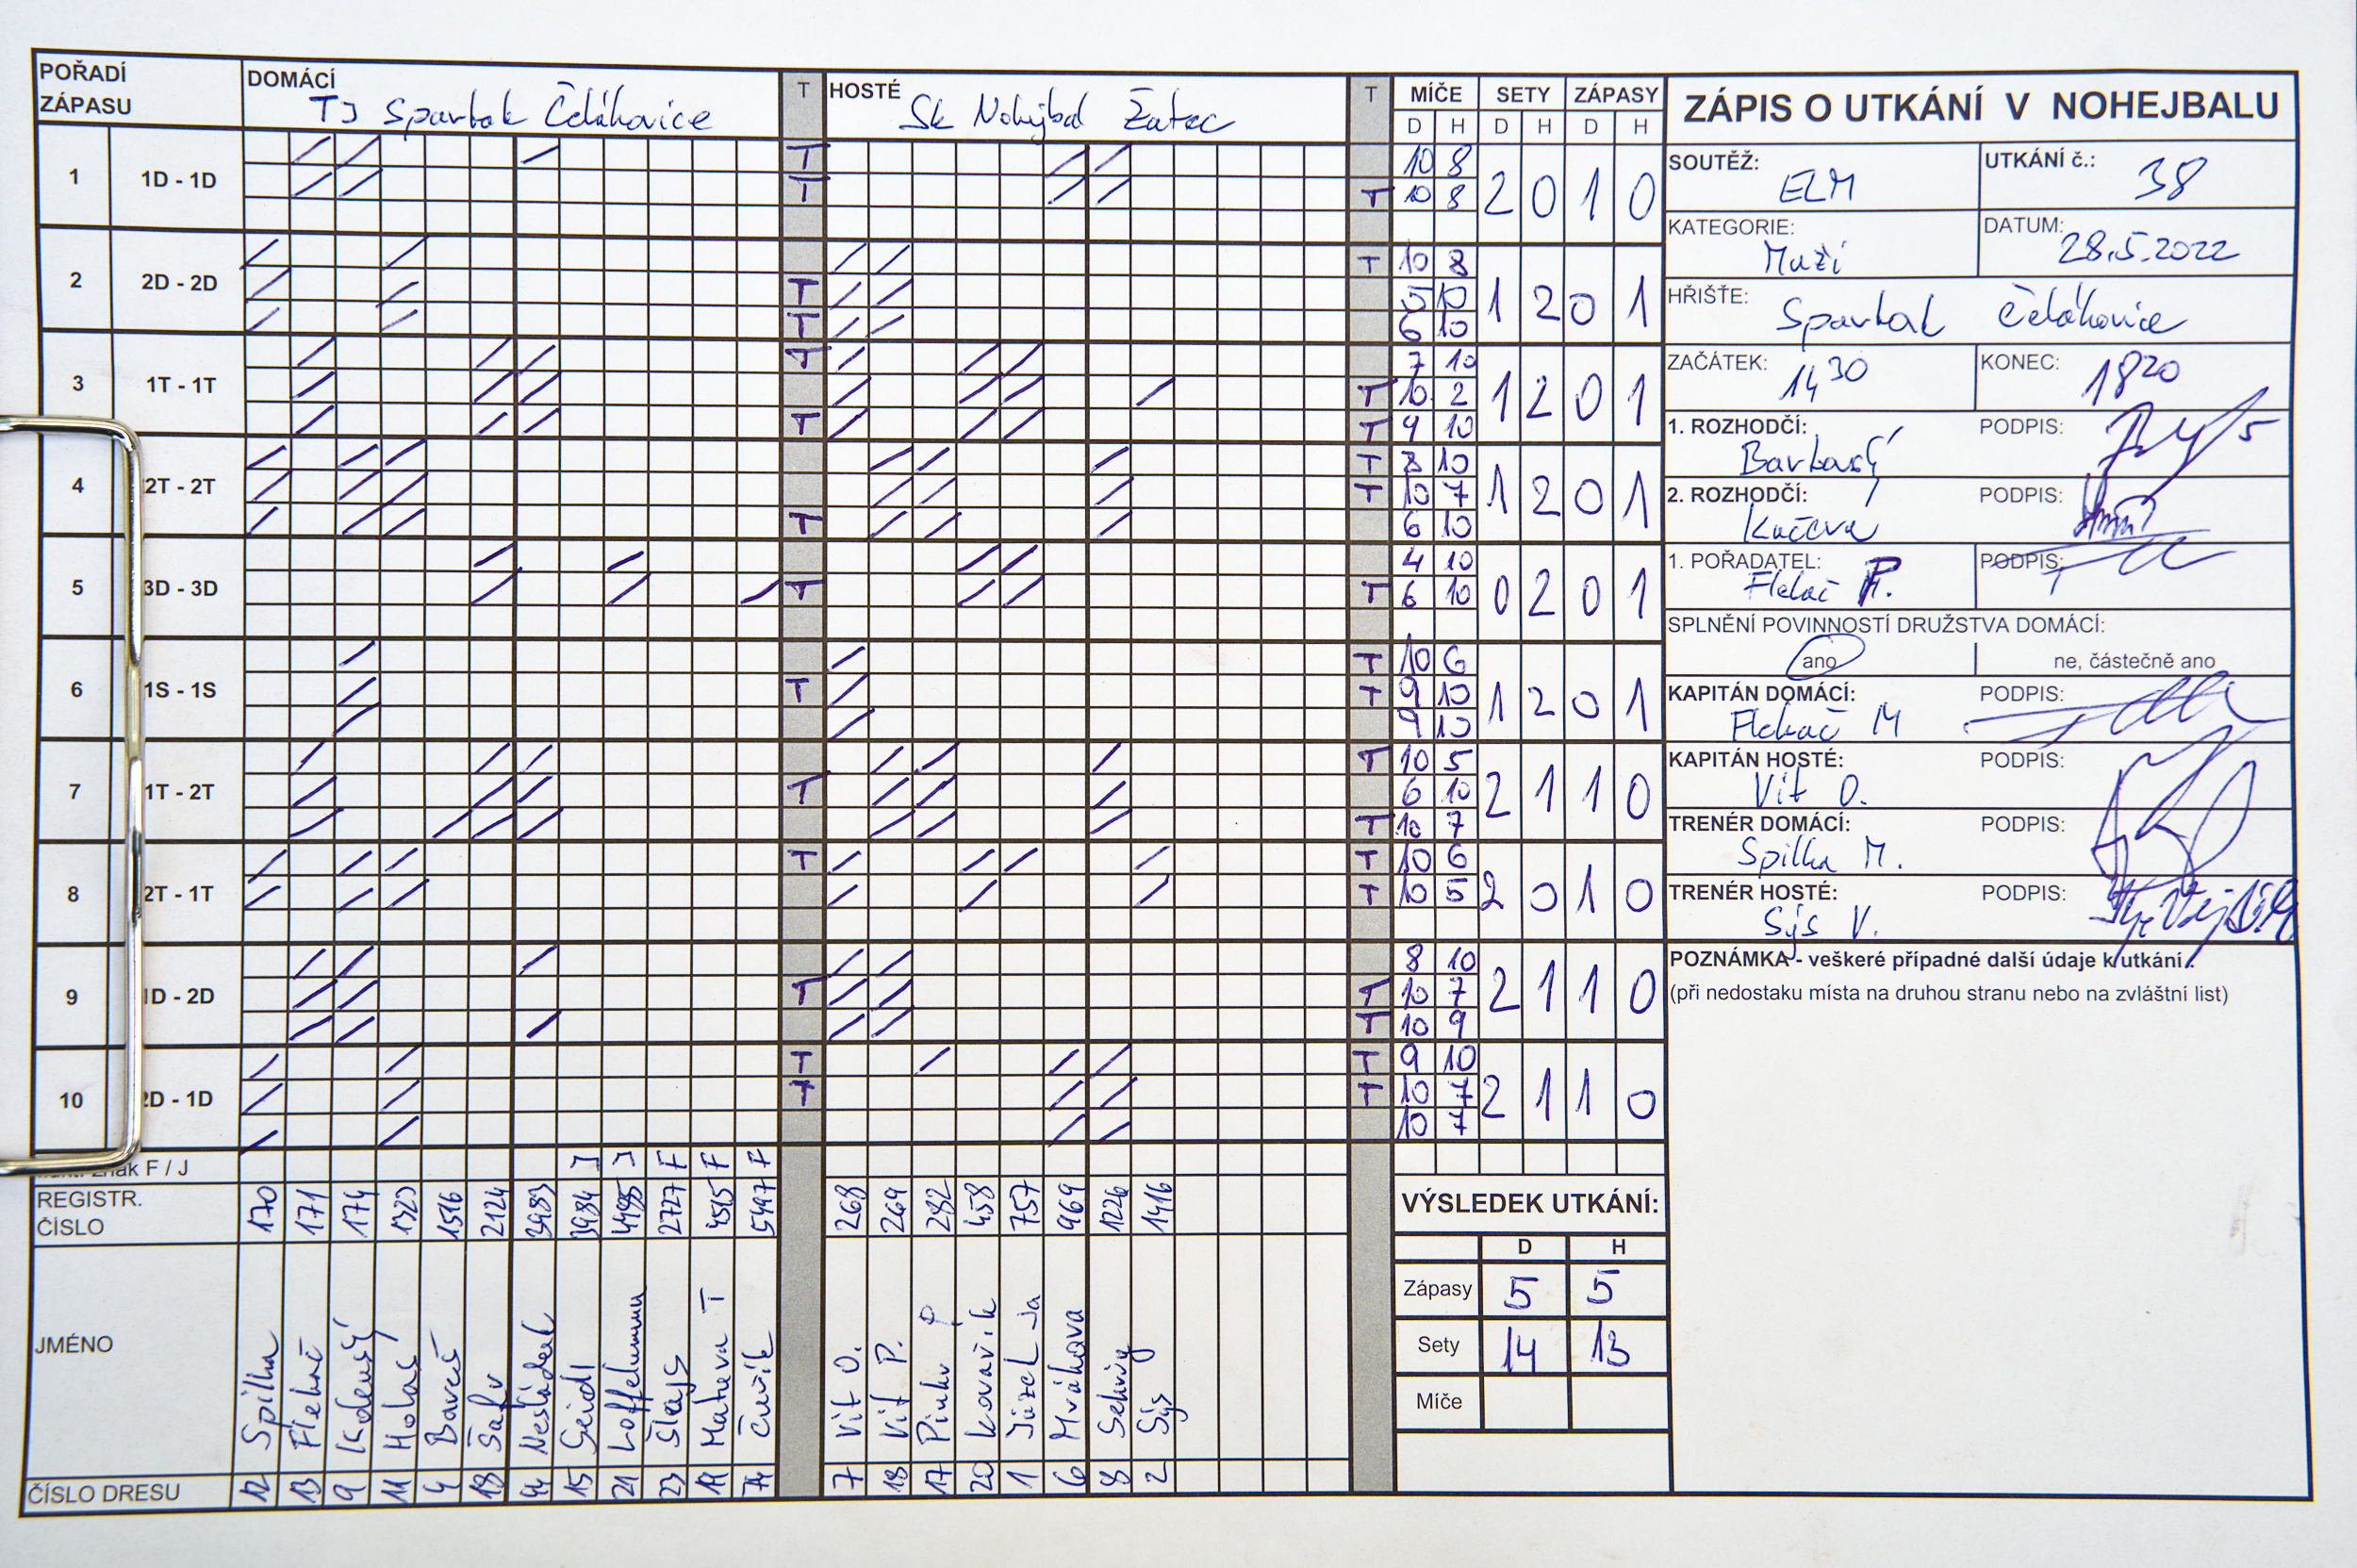 POŘADÍ ZÁPASU
DOMÁCÍ TJ Spartak Čelákovice
T
HOSTÉ Sk Nohejbal Žatec
T
MÍČE SETY ZÁPASY
D H D H D H
ZÁPIS O UTKÁNÍ V NOHEJBALU
SOUTĚŽ: ELM
UTKÁNÍ č.: 38
KATEGORIE: Muži
DATUM: 28.5.2022
HŘIŠTĚ: Spartak Čelákovice
ZAČÁTEK: 14 30
KONEC: 18 20
1. ROZHODČÍ:
PODPIS:
2. ROZHODČÍ:
PODPIS:
1. POŘADATEL: Flekač
PODPIS:
SPLNĚNÍ POVINNOSTÍ DRUŽSTVA DOMÁCÍ:
ano
ne, částečně ano
KAPITÁN DOMÁCÍ: Flekač M
PODPIS:
KAPITÁN HOSTÉ: Vít O.
PODPIS:
TRENÉR DOMÁCÍ: Spilka M.
PODPIS:
TRENÉR HOSTÉ: Sýs V.
PODPIS:
POZNÁMKA - veškeré případné další údaje k utkání.
(při nedostaku místa na druhou stranu nebo na zvláštní list)
1 1D - 1D T 10 8 2 0 1 0
T T 10 8
2 2D - 2D T 10 8 1 2 0 1
T 5 10
T 6 10
3 1T - 1T T 7 10 1 2 0 1
T 10 2
T T 9 10
4 2T - 2T T 8 10 1 2 0 1
T 10 7
T 6 10
5 3D - 3D 4 10 0 2 0 1
T T 6 10
6 1S - 1S T 10 6 1 2 0 1
T T 9 10
9 10
7 1T - 2T T 10 5 2 1 1 0
T 6 10
T 10 7
8 2T - 1T T T 10 6 2 0 1 0
T 10 5
9 1D - 2D 8 10 2 1 1 0
T T 10 7
T 10 9
10 2D - 1D T T 9 10 2 1 1 0
T T 10 7
10 7
znak F / J J J F F F
REGISTR. ČÍSLO 170 171 174 1323 1516 2124 3983 3984 4495 2727 4515 5497 268 269 282 458 757 969 1226 1416
JMÉNO Spilka Flekač Kolenský Holas Bareš Šafr Nesládek Seidl Loffelmann Štajs Matura T Čuřík Vít O. Vít P. Pinkr P Kovařík Jůzel Ja Mrákava Sýs
ČÍSLO DRESU 12 13 9 11 4 18 44 15 21 23 19 74 7 18 17 20 1 6 8 2
VÝSLEDEK UTKÁNÍ:
D H
Zápasy 5 5
Sety 14 13
Míče